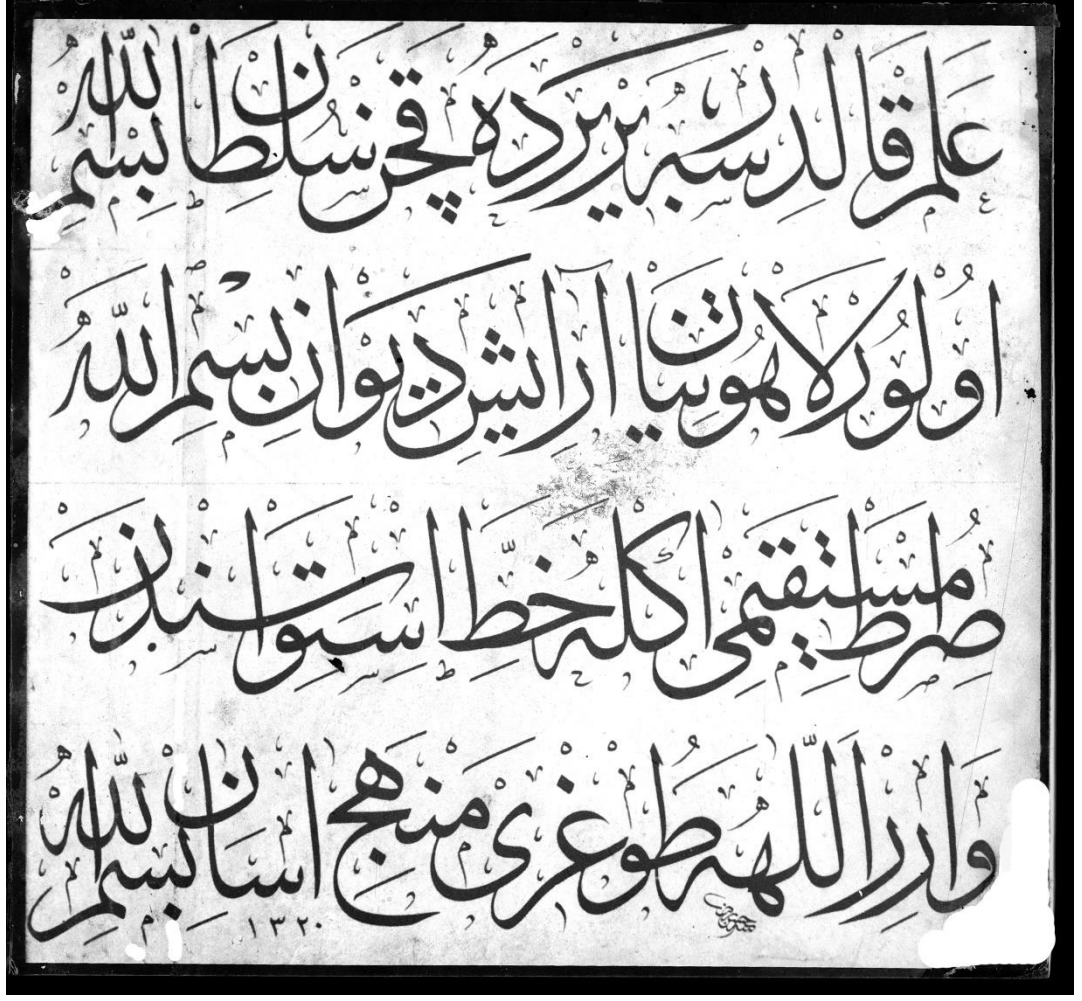 علم قالدرسه بر يرده قچن سلطان بسم الله
اولور لاهوتيان آرايش ديوان بسم الله
صراط مستقيمى اكله خط استواسندن
وارر اللهه طوغرى منهج اسان بسم الله
١٣٢٠